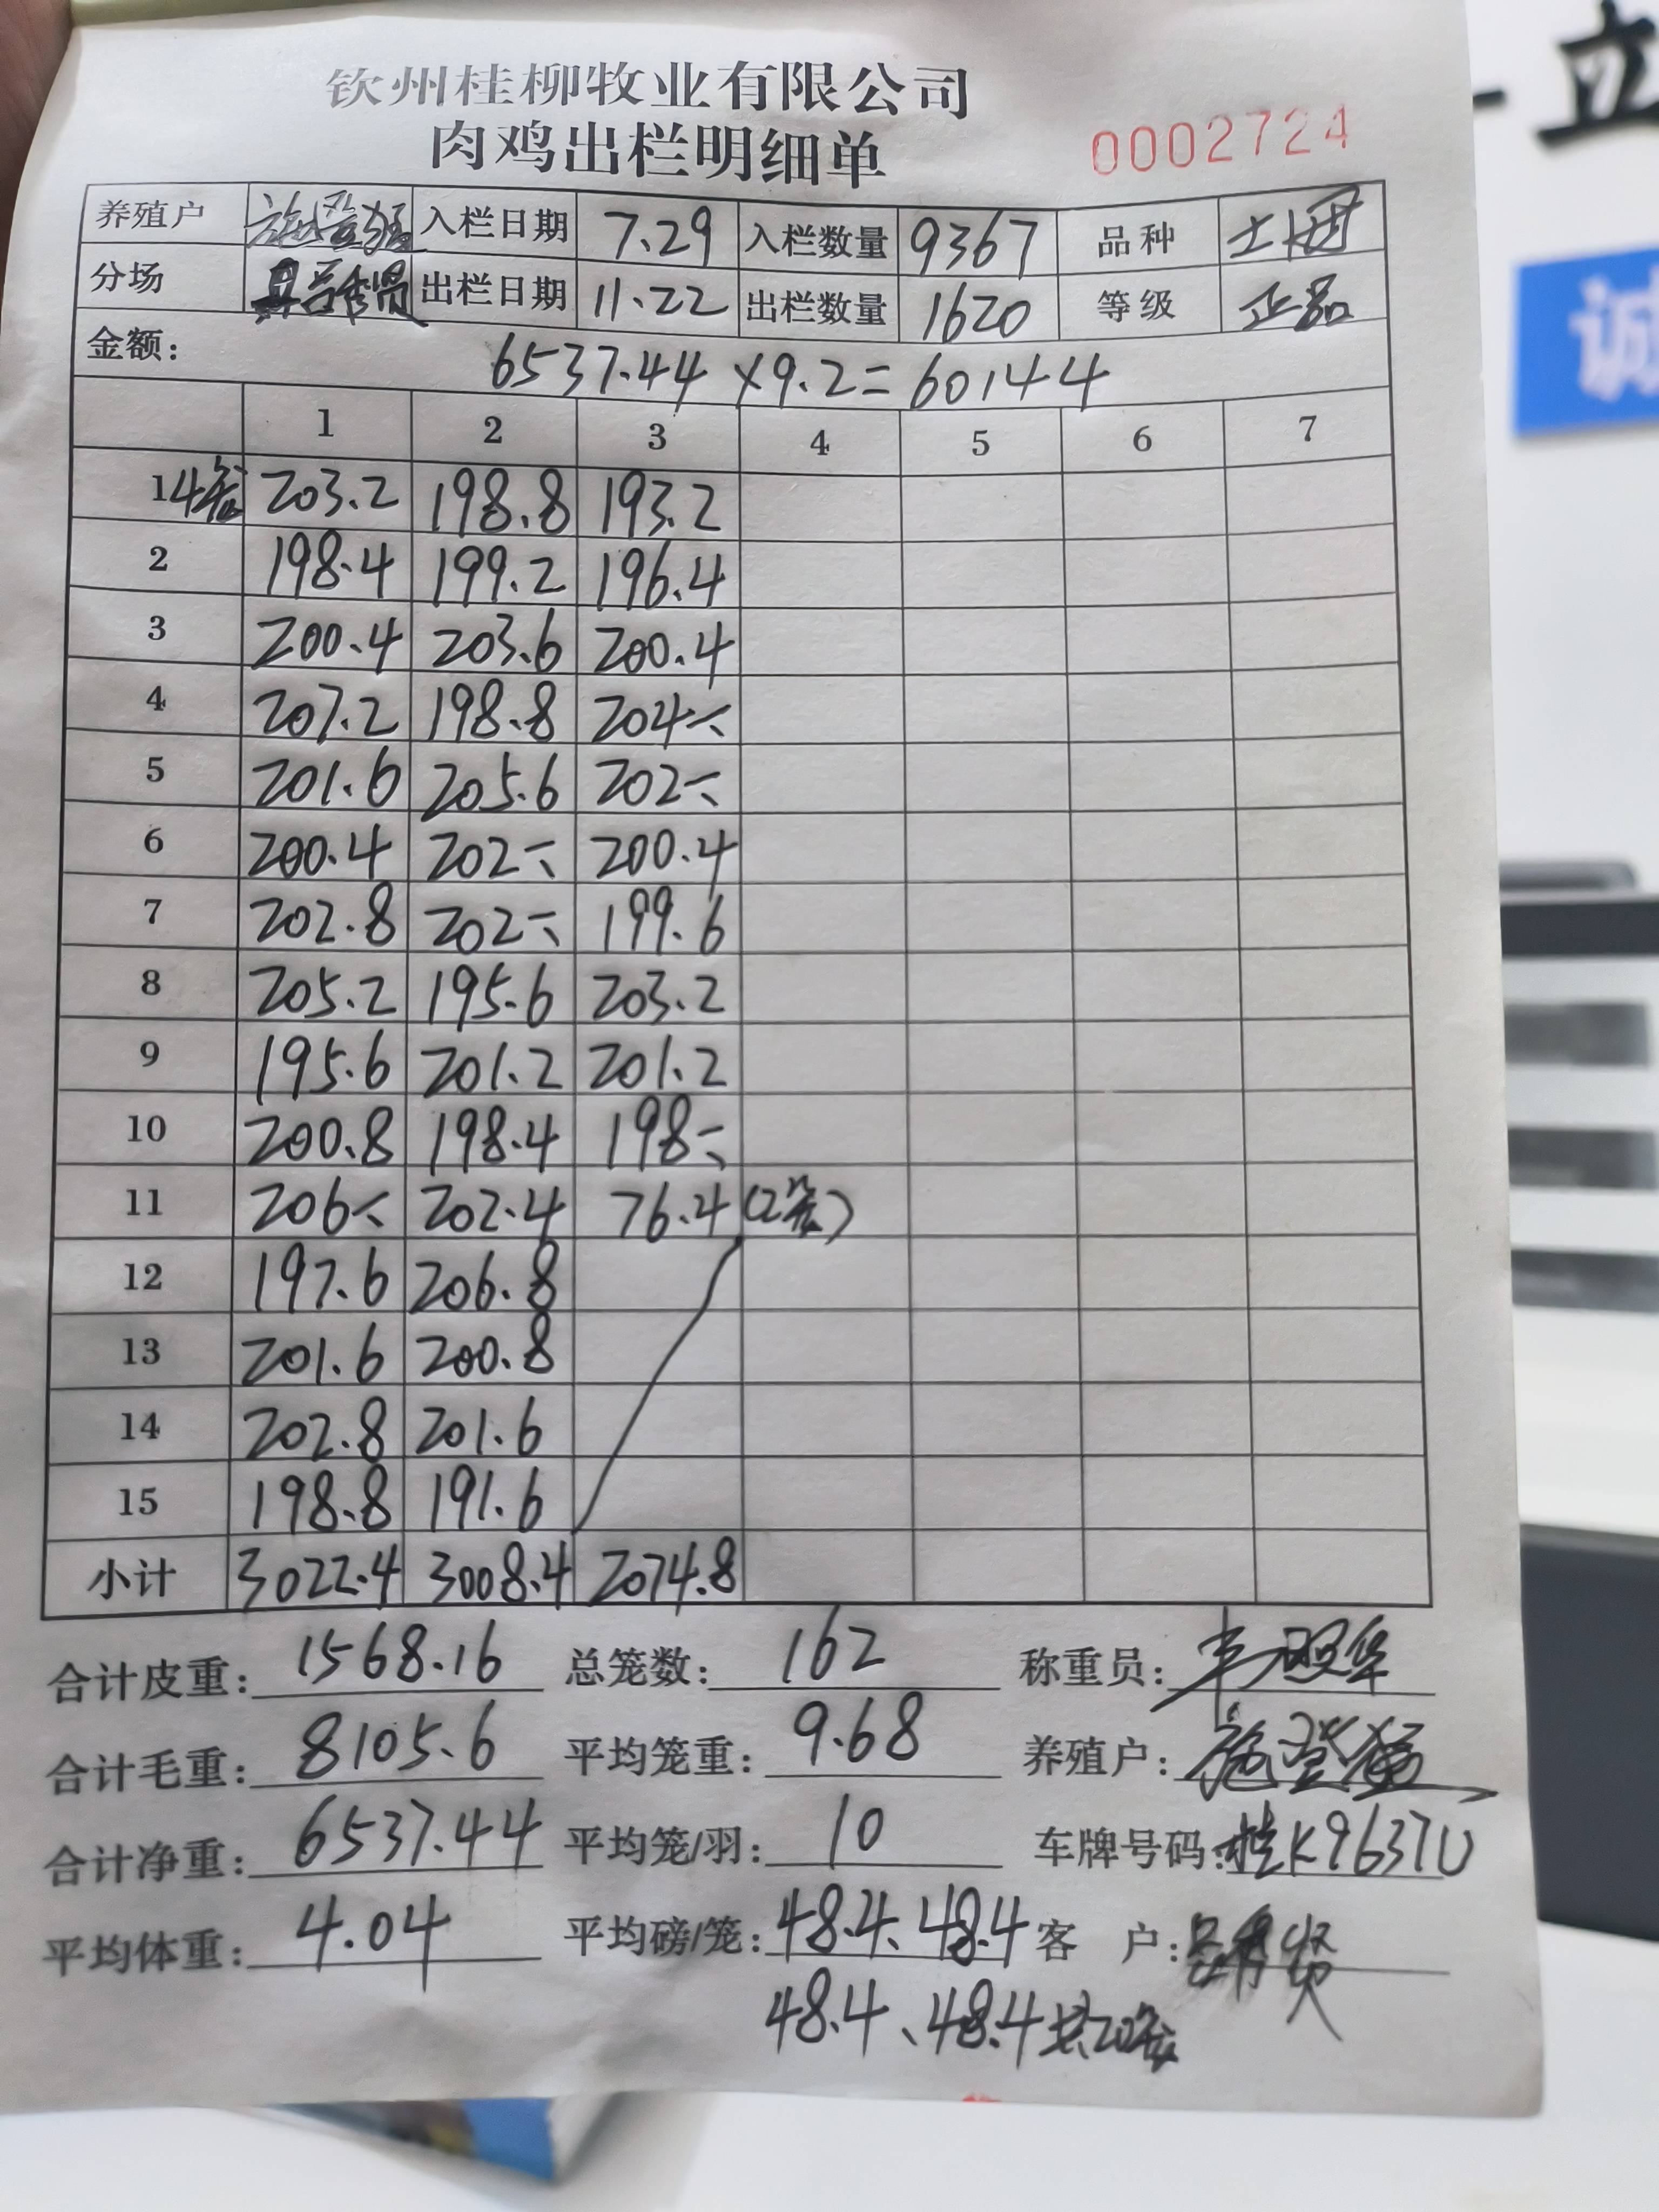 立
诚
钦州桂柳牧业有限公司
肉鸡出栏明细单
0002724
养殖户 入栏日期 7.29 入栏数量 9367 品种
分场 出栏日期 11.22 出栏数量 1620 等级 正品
金额: 6537.44 ×9.2= 60144
1 2 3 4 5 6 7
1 4笼 203.2 198.8 193.2
2 198.4 199.2 196.4
3 200.4 203.6 200.4
4 207.2 198.8 204
5 201.6 205.6 202
6 200.4 202 200.4
7 202.8 202 199.6
8 205.2 195.6 203.2
9 195.6 201.2 201.2
10 200.8 198.4 198
11 206 202.4 76.4 (2笼)
12 197.6 206.8
13 201.6 200.8
14 202.8 201.6
15 198.8 191.6
小计 3022.4 3008.4 2074.8
合计皮重: 1568.16 总笼数: 162 称重员:
合计毛重: 8105.6 平均笼重: 9.68 养殖户:
合计净重: 6537.44 平均笼/羽: 10 车牌号码: 桂K9637U
平均体重: 4.04 平均磅/笼: 48.4、48.4 客 户:
48.4、48.4 共20笼